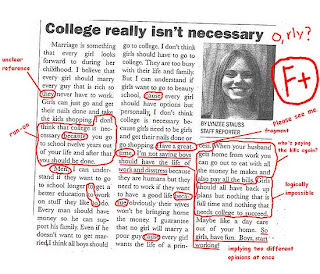 College really isn't necessary
O, rly?
F+
unclear
reference
run-on
Marriage is something
that every girl looks
forward to during her
childhood. I believe that
every girl should marry
every guy that is rich to
they never have to work.
Girls can just go and get
their nails done and take
the kids shopping. I don't
think that college is nec-
essary because you go
to school twelve years out
of your life and after that
you should be done.
Men, I can under-
stand if they want to go
to school longer to get a
better education to work
on stuff they like to do.
Every man should have
money so he can sup-
port his family. Even if he
doesn't want to get mar-
ried, I think all boys should
go to college. I don't think
girls should have to go to
college. They are too busy
with their life and family.
But I can understand if
every girl wants to go to beauty
school, cause every girl
should have options but
personally, I don't think
college is necessary be-
cause girls need to go
and get their nails done or
go shopping. Have a great
time. I'm not saying boys
should have the life of
work and distress because
they are human but they
need to work if they want
to have a good life because
obviously their wives
won't be bringing home
the money. I guarantee
that no girl will marry a
poor guy cause every girl
wants the life of a prin-
BY LYNZIE STAUSS
STAFF REPORTER
Please see me
fragment
who's paying
the bills again?
cess. When your husband
gets home from work you
can go out to eat with all
the money he makes and
also pay all the bills. Girls
should all have back up
plans but nothing that is
full time and nothing that
needs college to succeed.
Maybe like a day care
out of your home. So
girls, have fun. Boys, start
working!
logically
impossible
implying two different
opinions at once